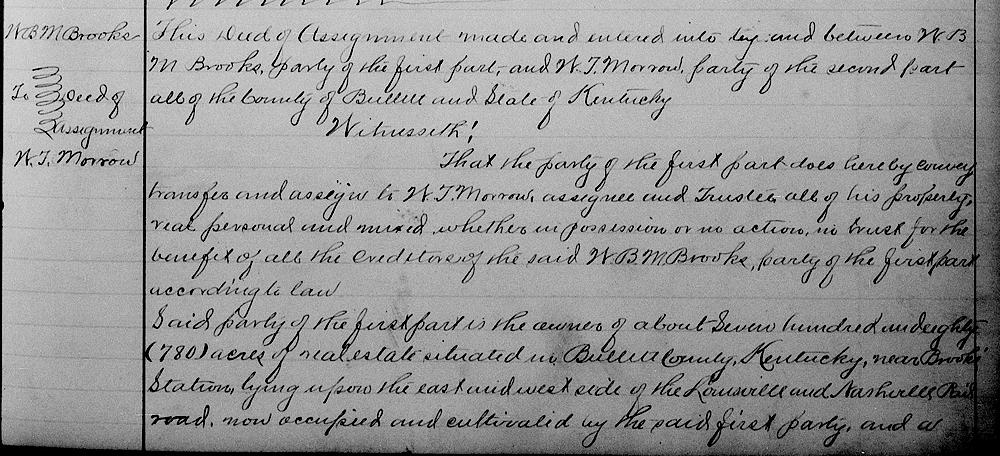 W.B.M Brooks
To Deed of
Assignment
W.T. Morrow
This Deed of Assignment made and entered into by and between W.B
M Brooks, party of the first part, and W.T. Morrow, party of the second part
all of the County of Bullitt and State of Kentucky
Witnesseth!
That the party of the first part does hereby convey
transfer and assign to W.T. Morrow, assignee and Trustee, all of his property,
real personal and mixed, whether in possession or no action, in trust for the
benefit of all the creditors of the said W.B.M Brooks, party of the first part
according to law
Said party of the first part is the owner of about Seven hundred and eighty
(780) acres of real estate situated in Bullitt County, Kentucky, near Brooks'
Station, lying upon the east and west side of the Louisville and Nashville Rail
road, now occupied and cultivated by the said first party, and a